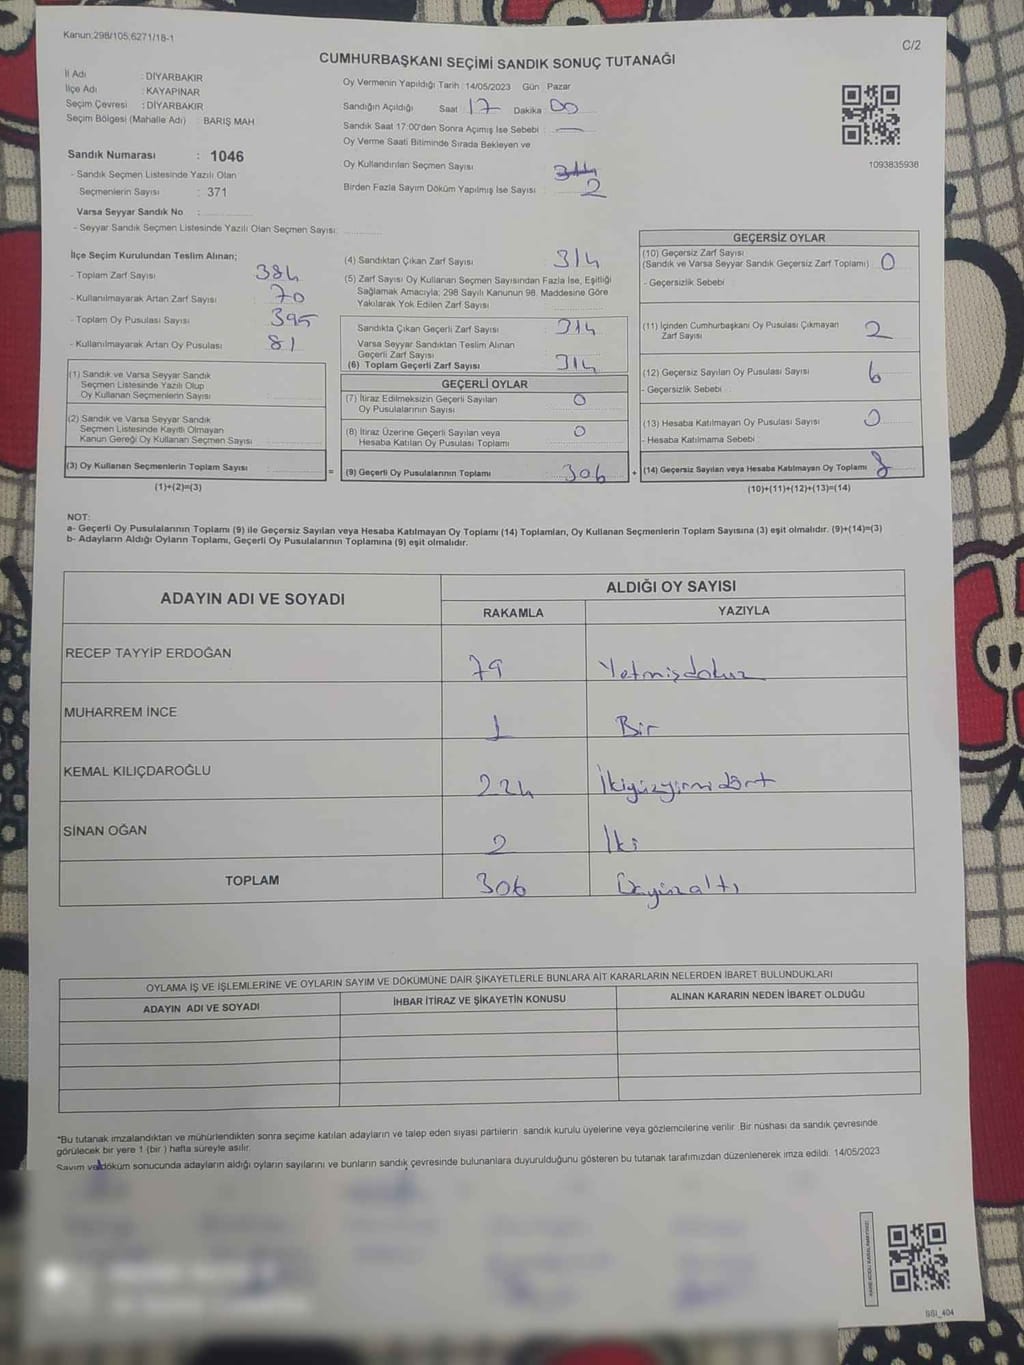 Kanun;298/105;6271/18-1
C/2
CUMHURBAŞKANI SEÇİMİ SANDIK SONUÇ TUTANAĞI
İl Adı : DİYARBAKIR
İlçe Adı : KAYAPINAR
Seçim Çevresi : DİYARBAKIR
Seçim Bölgesi (Mahalle Adı) : BARIŞ MAH
Sandık Numarası : 1046
- Sandık Seçmen Listesinde Yazılı Olan
Seçmenlerin Sayısı : 371
Varsa Seyyar Sandık No :
- Seyyar Sandık Seçmen Listesinde Yazılı Olan Seçmen Sayısı:
Oy Vermenin Yapıldığı Tarih :14/05/2023 Gün Pazar
Sandığın Açıldığı Saat : 17 Dakika : 00
Sandık Saat 17:00'den Sonra Açımış Ise Sebebi : —
Oy Verme Saati Bitiminde Sırada Bekleyen ve
Oy Kullandırılan Seçmen Sayısı 314
Birden Fazla Sayım Döküm Yapılmış Ise Sayısı : 2
1093835936
İlçe Seçim Kurulundan Teslim Alınan;
- Toplam Zarf Sayısı : 384
- Kullanılmayarak Artan Zarf Sayısı : 70
- Toplam Oy Pusulası Sayısı : 395
- Kullanılmayarak Artan Oy Pusulası : 81
(1) Sandık ve Varsa Seyyar Sandık
Seçmen Listesinde Yazılı Olup
Oy Kullanan Seçmenlerin Sayısı :
(2) Sandık ve Varsa Seyyar Sandık
Seçmen Listesinde Kayıtlı Olmayan
Kanun Gereği Oy Kullanan Seçmen Sayısı:
(3) Oy Kullanan Seçmenlerin Toplam Sayısı :
=
(1)+(2)=(3)
(4) Sandıktan Çıkan Zarf Sayısı : 314
(5) Zarf Sayısı Oy Kullanan Seçmen Sayısından Fazla Ise, Eşitliği
Sağlamak Amacıyla; 298 Sayılı Kanunun 98. Maddesine Göre
Yakılarak Yok Edilen Zarf Sayısı :
Sandıkta Çıkan Geçerli Zarf Sayısı : 314
Varsa Seyyar Sandıktan Teslim Alınan
Geçerli Zarf Sayısı
(6) Toplam Geçerli Zarf Sayısı : 314
GEÇERLİ OYLAR
(7) İtiraz Edilmeksizin Geçerli Sayılan
Oy Pusulalarının Sayısı : 0
(8) İtiraz Üzerine Geçerli Sayılan veya
Hesaba Katılan Oy Pusulası Toplamı : 0
(9) Geçerli Oy Pusulalarının Toplamı : 306
+
GEÇERSİZ OYLAR
(10) Geçersiz Zarf Sayısı
(Sandık ve Varsa Seyyar Sandık Geçersiz Zarf Toplamı) : 0
- Geçersizlik Sebebi :
(11) İçinden Cumhurbaşkanı Oy Pusulası Çıkmayan
Zarf Sayısı : 2
(12) Geçersiz Sayılan Oy Pusulası Sayısı : 6
- Geçersizlik Sebebi :
(13) Hesaba Katılmayan Oy Pusulası Sayısı : 0
- Hesaba Katılmama Sebebi :
(14) Geçersiz Sayılan veya Hesaba Katılmayan Oy Toplamı : 8
(10)+(11)+(12)+(13)=(14)
NOT:
a- Geçerli Oy Pusulalarının Toplamı (9) ile Geçersiz Sayılan veya Hesaba Katılmayan Oy Toplamı (14) Toplamları, Oy Kullanan Seçmenlerin Toplam Sayısına (3) eşit olmalıdır. (9)+(14)=(3)
b- Adayların Aldığı Oyların Toplamı, Geçerli Oy Pusulalarının Toplamına (9) eşit olmalıdır.
ADAYIN ADI VE SOYADI ALDIĞI OY SAYISI
RAKAMLA YAZIYLA
RECEP TAYYİP ERDOĞAN 79 Yetmişdokuz
MUHARREM İNCE 1 Bir
KEMAL KILIÇDAROĞLU 224 İkiyüzyirmidört
SİNAN OĞAN 2 İki
TOPLAM 306 Üçyüzaltı
OYLAMA İŞ VE İŞLEMLERİNE VE OYLARIN SAYIM VE DÖKÜMÜNE DAİR ŞİKAYETLERLE BUNLARA AİT KARARLARIN NELERDEN İBARET BULUNDUKLARI
ADAYIN ADI VE SOYADI İHBAR İTİRAZ VE ŞİKAYETİN KONUSU ALINAN KARARIN NEDEN İBARET OLDUĞU
*Bu tutanak imzalandıktan ve mühürlendikten sonra seçime katılan adayların ve talep eden siyasi partilerin sandık kurulu üyelerine veya gözlemcilerine verilir .Bir nüshası da sandık çevresinde
görülecek bir yere 1 (bir ) hafta süreyle asılır.
Sayım ve döküm sonucunda adayların aldığı oyların sayılarını ve bunların sandık çevresinde bulunanlara duyurulduğunu gösteren bu tutanak tarafımızdan düzenlenerek imza edildi. 14/05/2023
SSI_404